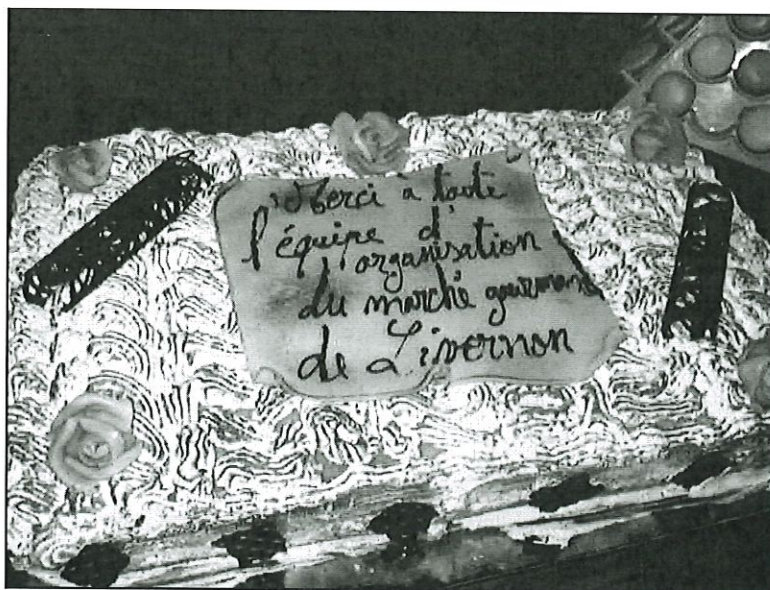 Merci à toute
l'équipe d'
organisation
du marché gourmand
de Livernon